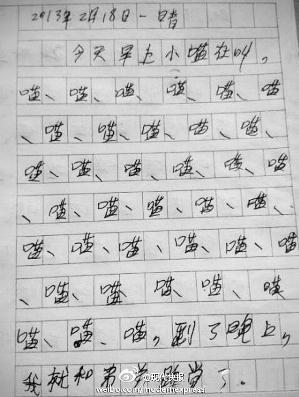 2013年2月18日 一 晴
今天早上小喵在叫，
喵、喵、喵、喵、喵、喵
、喵、喵、喵、喵、喵、
喵、喵、喵、喵、喵、喵
、喵、喵、喵、喵、喵、
喵、喵、喵、喵、喵、喵
、喵、喵、喵、喵、喵
喵、喵、喵，到了晚上，
我就和了.
@现代快报
weibo.com/modernexpress